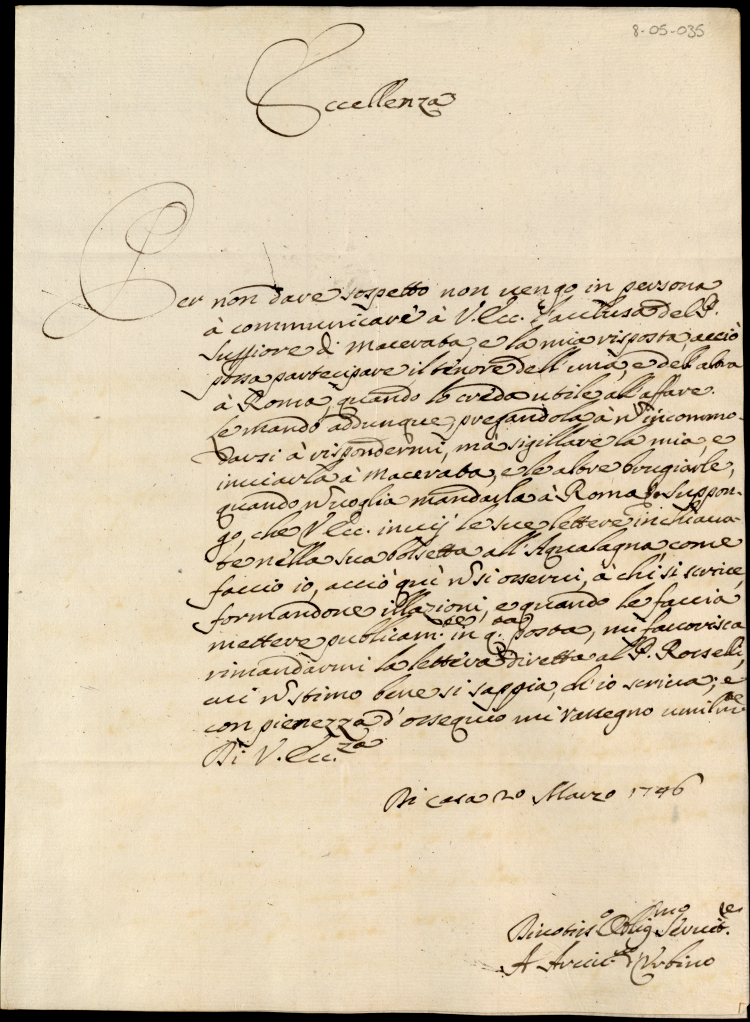 8-05-035
Eccellenza
Per non dare sospetto non vengo in persona
à communicare à V. Ecc. l'acclusa del P.
Suffiore di Macerata, e la mia risposta, acciò
possa partecipare il tenore dell'una, e dell'altra
à Roma, quando lo creda utile all'affare.
Le mando addunque, pregandola à ñ incommo-
darsi à rispondermi, mà sigillare la mia, e
inviarla à Macerata, e le altre brugiarle,
quando ñ voglia mandarla à Roma. Suppon-
go, che V. Ecc. invij le sue lettere inchiava-
te nella sua bolsetta all'Aqualagna, come
faccio io, acciò quì ñ si osservi, à chi si scrive,
formandone illazioni, e quando le faccia
mettere publicam.te in q.ta posta, mi favorisca
rimandarmi la lettera diretta al P. Roselli,
cui ñ stimo bene si sappia, ch'io scriva; e
con pienezza d'ossequio mi rassegno umilm.e
Di V. Ecc.za
Di casa 20 Marzo 1746
Divotis.o Oblig.mo Servit.re
A Arciv.o d'Urbino